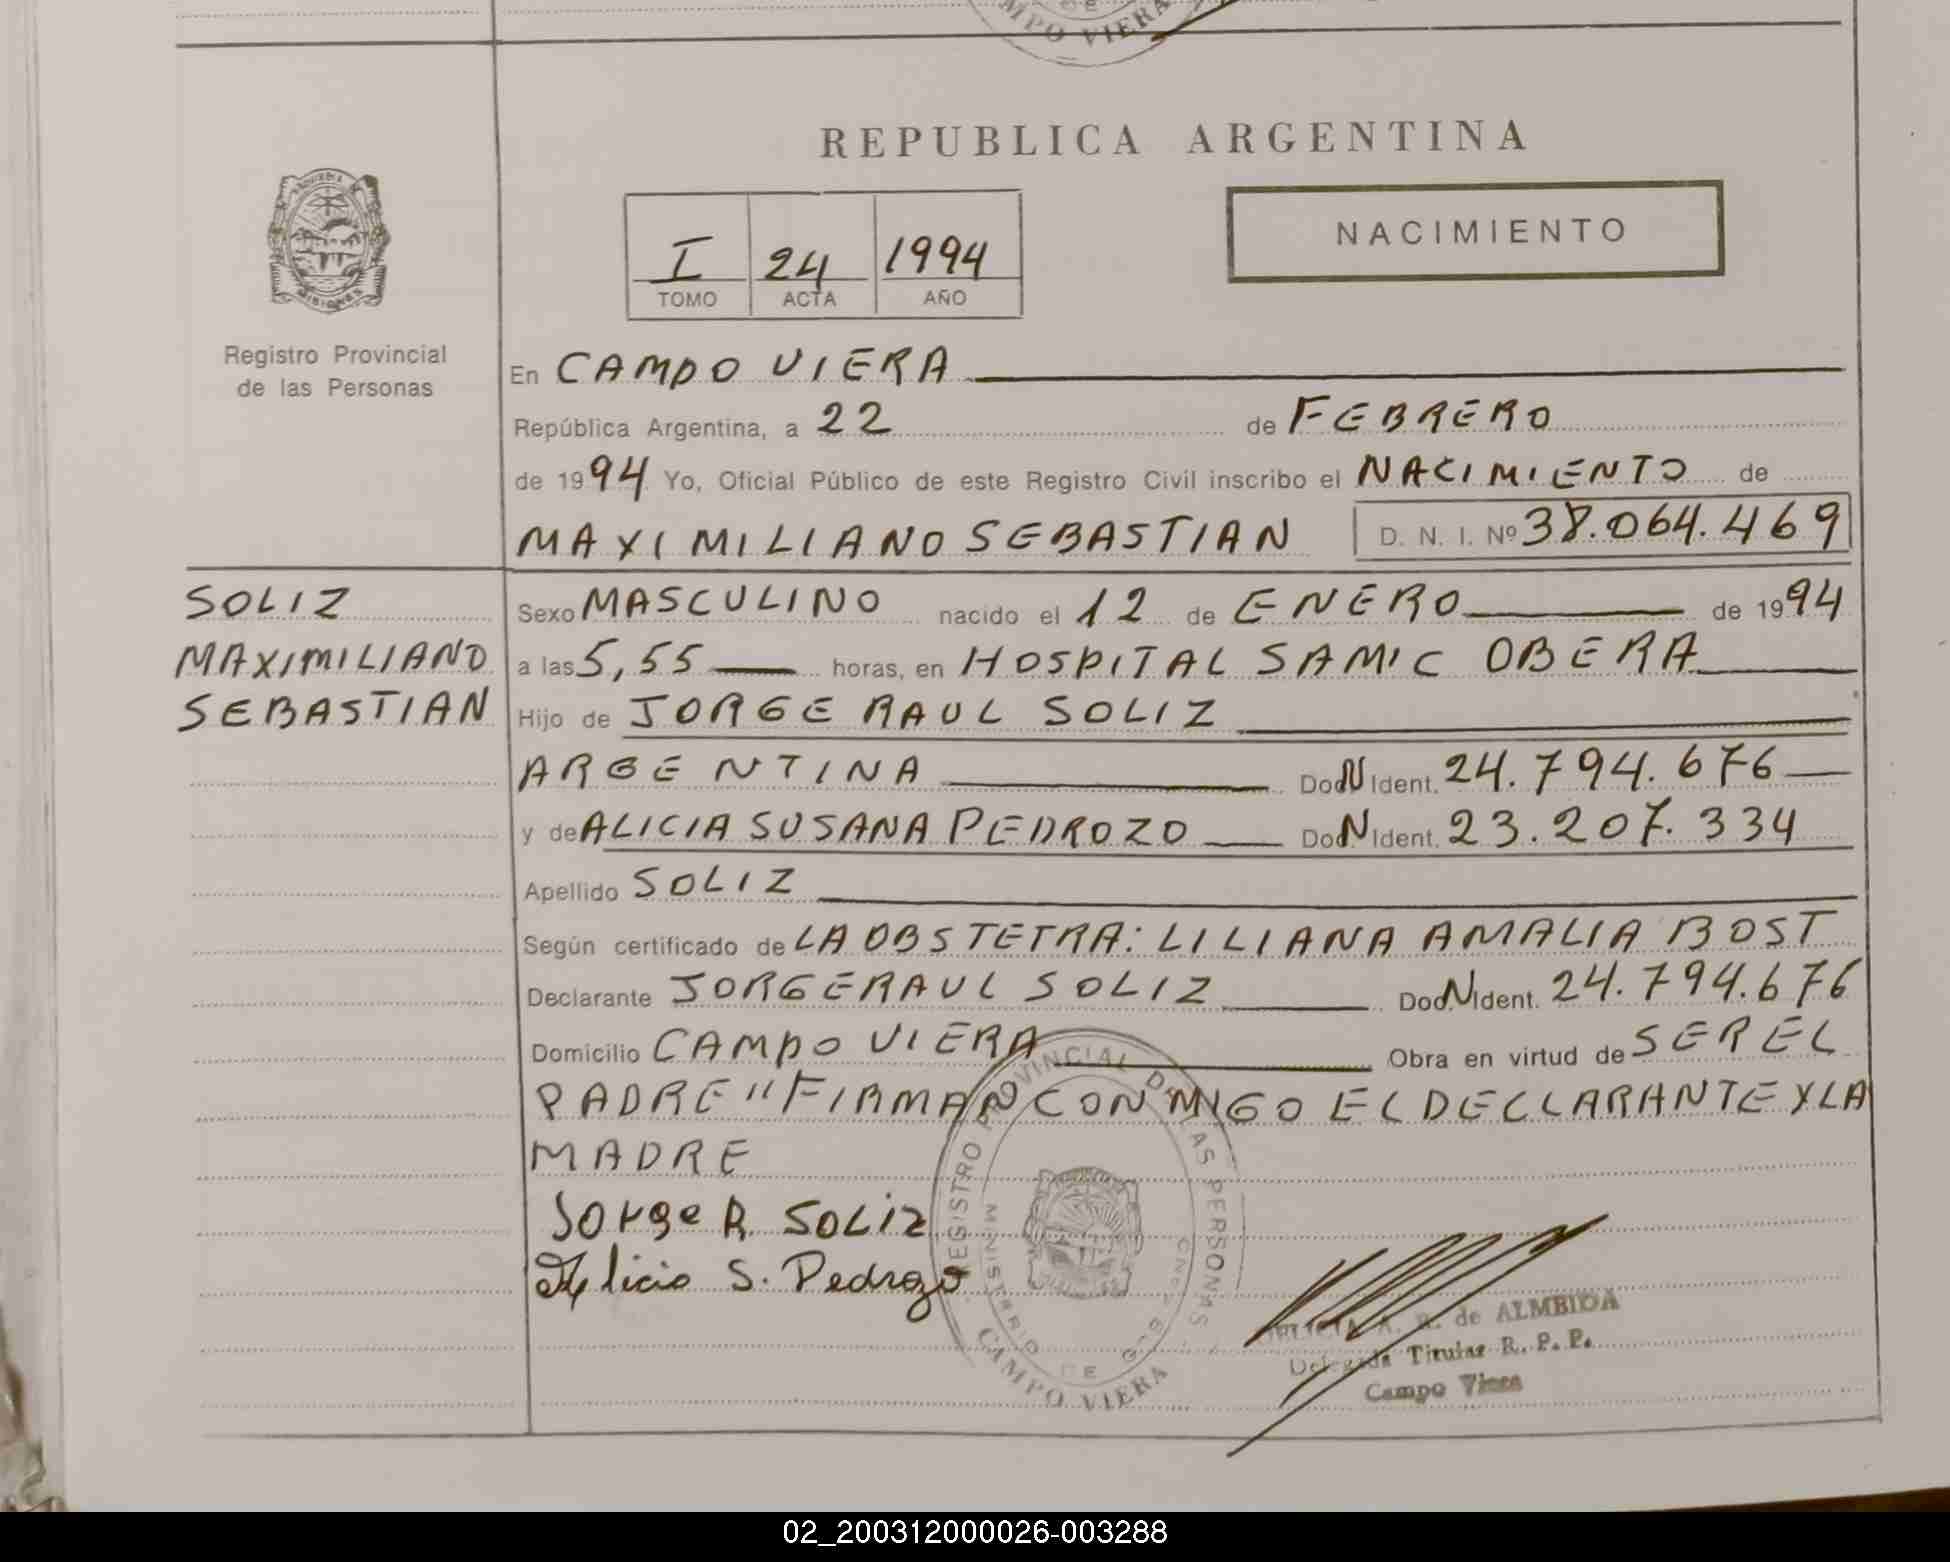 MPO VIERA
REPUBLICA ARGENTINA
MISIONES
Registro Provincial
de las Personas
I 24 1994
TOMO ACTA AÑO
NACIMIENTO
En CAMPO VIERA
República Argentina, a 22 de FEBRERO
de 1994 Yo, Oficial Público de este Registro Civil inscribo el NACIMIENTO de
MAXIMILIANO SEBASTIAN D. N. I. Nº 38.064.469
SOLIZ
MAXIMILIANO
SEBASTIAN
Sexo MASCULINO nacido el 12 de ENERO de 1994
a las 5,55 horas, en HOSPITAL SAMIC OBERA
Hijo de JORGE RAUL SOLIZ
ARGENTINA Doc. N Ident. 24.794.676
y de ALICIA SUSANA PEDROZO Doc. N Ident. 23.207.334
Apellido SOLIZ
Según certificado de LA OBSTETRA: LILIANA AMALIA BOST
Declarante JORGE RAUL SOLIZ Doc. N Ident. 24.794.676
Domicilio CAMPO VIERA Obra en virtud de SER EL
PADRE " FIRMAN CON MIGO EL DECLARANTE Y LA
MADRE
Jorge R. SOLIZ
Alicia S. Pedrozo
REGISTRO PROVINCIAL DE LAS PERSONAS
MINISTERIO DE GOB
CAMPO VIERA
A. R. de ALMEIDA
Delegada Titular R. P. P.
Campo Viera
02_200312000026-003288